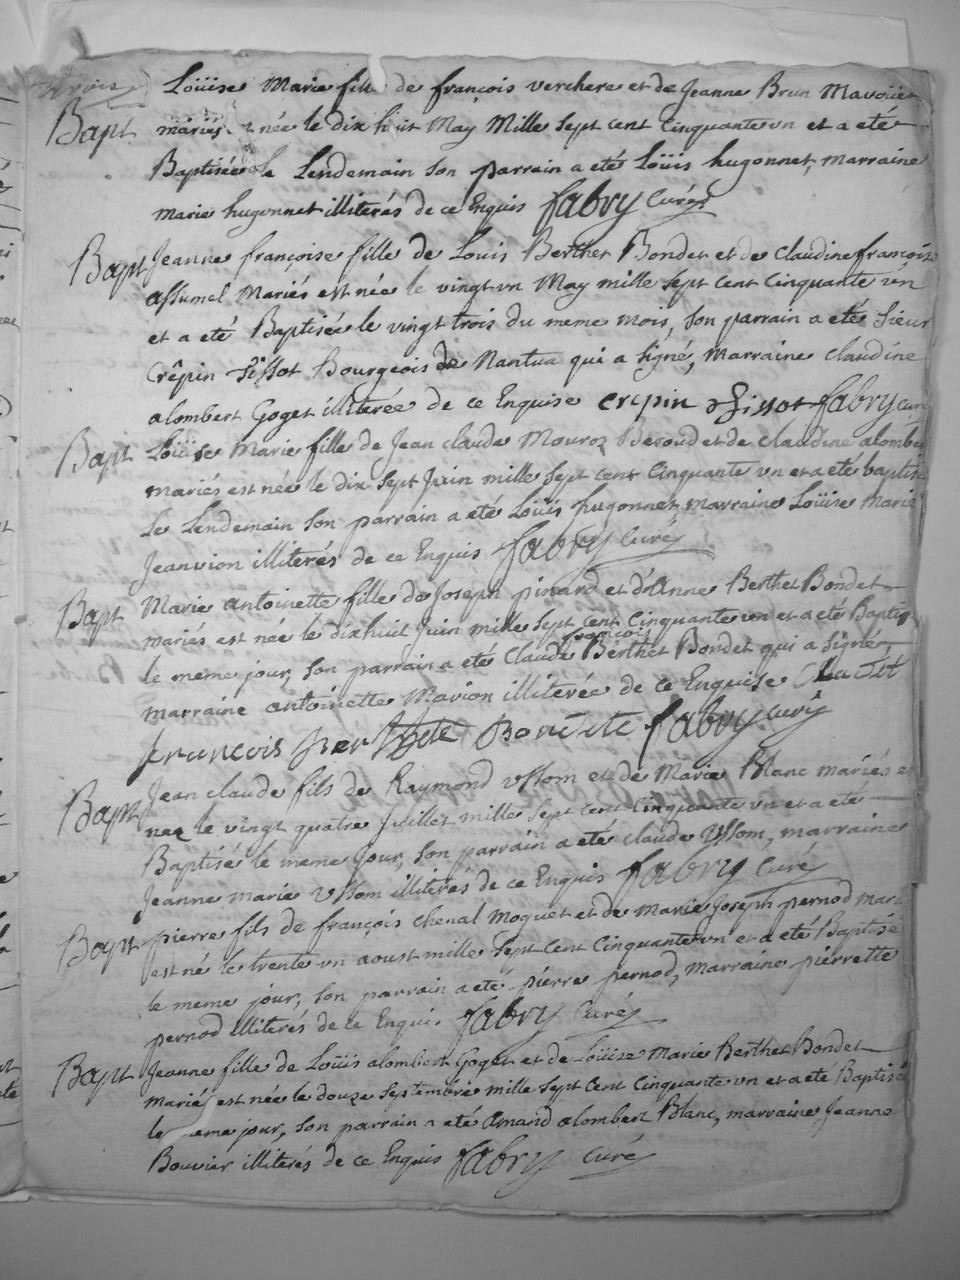 Loüise Marie fille de françois verchere et de Jeanne Brun Mavoüie
Bapt mariés est née le dix huit May Mille sept cent Cinquante vn et a eté
Baptisée le Lendemain son parrain a eté Loüis hugonnet, marraine
marie hugonnet illiterés de ce Enquis fabry Curé
Bapt Jeanne françoise fille de Louis Berthet Bondet et de Claudine françoise
assumel Mariés est née le vingt vn May mille sept Cent Cinquante vn
et a eté Baptisée le vingt trois du meme mois, son parrain a eté sieur
Crêpin sissot Bourgeois de Nantua qui a signé, marraine Claudine
alombert Goget illiterée de ce Enquise crepin sissot fabry curé
Bapt Loüise Marie fille de Jean claude Mouroz Beroud et de claudine alombe
mariés est née le dix sept Juin mille sept cent Cinquante vn et a eté baptis
le Lendemain son parrain a eté Loüis hugonnet marraine Loüise Marie
Jeanvion illiterés de ce Enquis fabry Curé
Bapt Marie antoinette fille de Joseph pinard et d'Anne Berthet Bondet
mariés est née le dixhuit Juin mille sept cent Cinquante vn et a eté Baptis
le meme jour, son parrain a eté Claude françois Berthet Bondet qui a signé
marraine antoinette Marion illiterée de ce Enquise
françois fabry curé
Bapt Jean claude fils de Raymond vssom et de Marie Blanc mariés e
nee le vingt quatre Juillet mille sept cent Cinquante vn et a eté
Baptisé le meme Jour, son parrain a eté claude Vssom, marraine
Jeanne marie vssom illiterés de ce Enquis fabry Curé
Bapt pierre fils de françois Chenal Moquet et de Marie Joseph pernod mari
est né le trente vn aoust mille sept cent Cinquante vn et a eté Baptisé
le meme jour, son parrain a eté pierre pernod, Marraine pierrette
pernod illiterés de ce Enquis fabry Curé
Bapt Jeanne fille de Loüis alombert Goget et de Loüise Marie Berthet Bondet
Mariés est née le douze septembre mille sept Cent Cinquante vn et a eté Baptisé
le meme jour, son parrain a eté Amand alombert Blanc, marraine Jeanne
Bouvier illiterés de ce Enquis fabry Curé